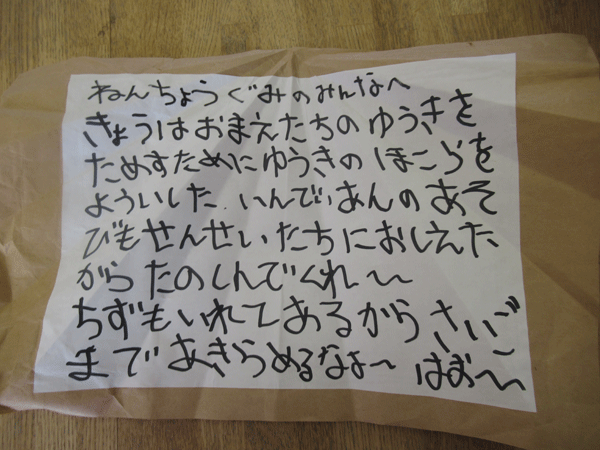 ねんちょうぐみのみんなへ
きょうはおまえたちのゆうきを
ためすためにゆうきのほこらを
よういした。いんでぃあんのあそ
びもせんせいたちにおしえた
からたのしんでくれ〜
ちずもいれてあるからさいご
まであきらめるなよ〜 はお〜